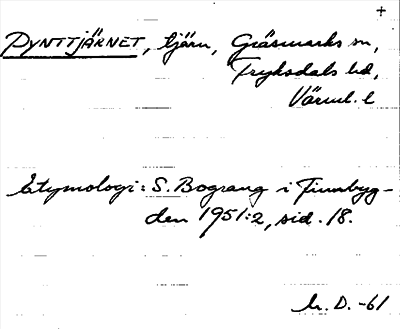 +
PYNTTJÄRNET, tjärn, Gräsmarks sn,
Fryksdals hd,
Värml. l
Etymologi: S. Bograng i Finnbyg-
den 1951:2, sid. 18.
h. D. -61